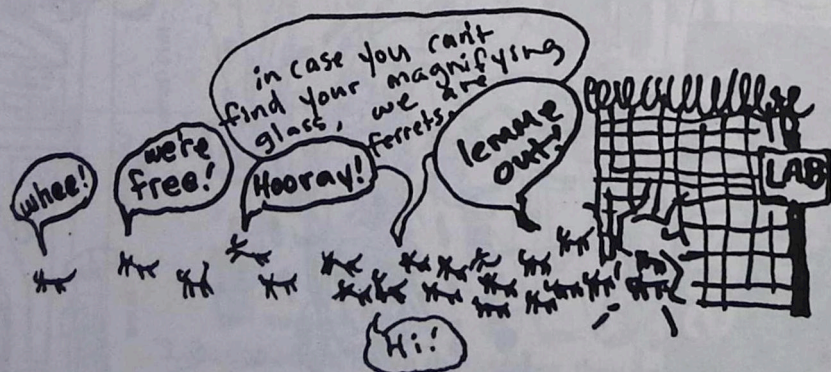 whee!
we're
free!
in case you can't
find your magnifying
glass, we are
ferrets.
Hooray!
lemme
out!
LAB
Hi!